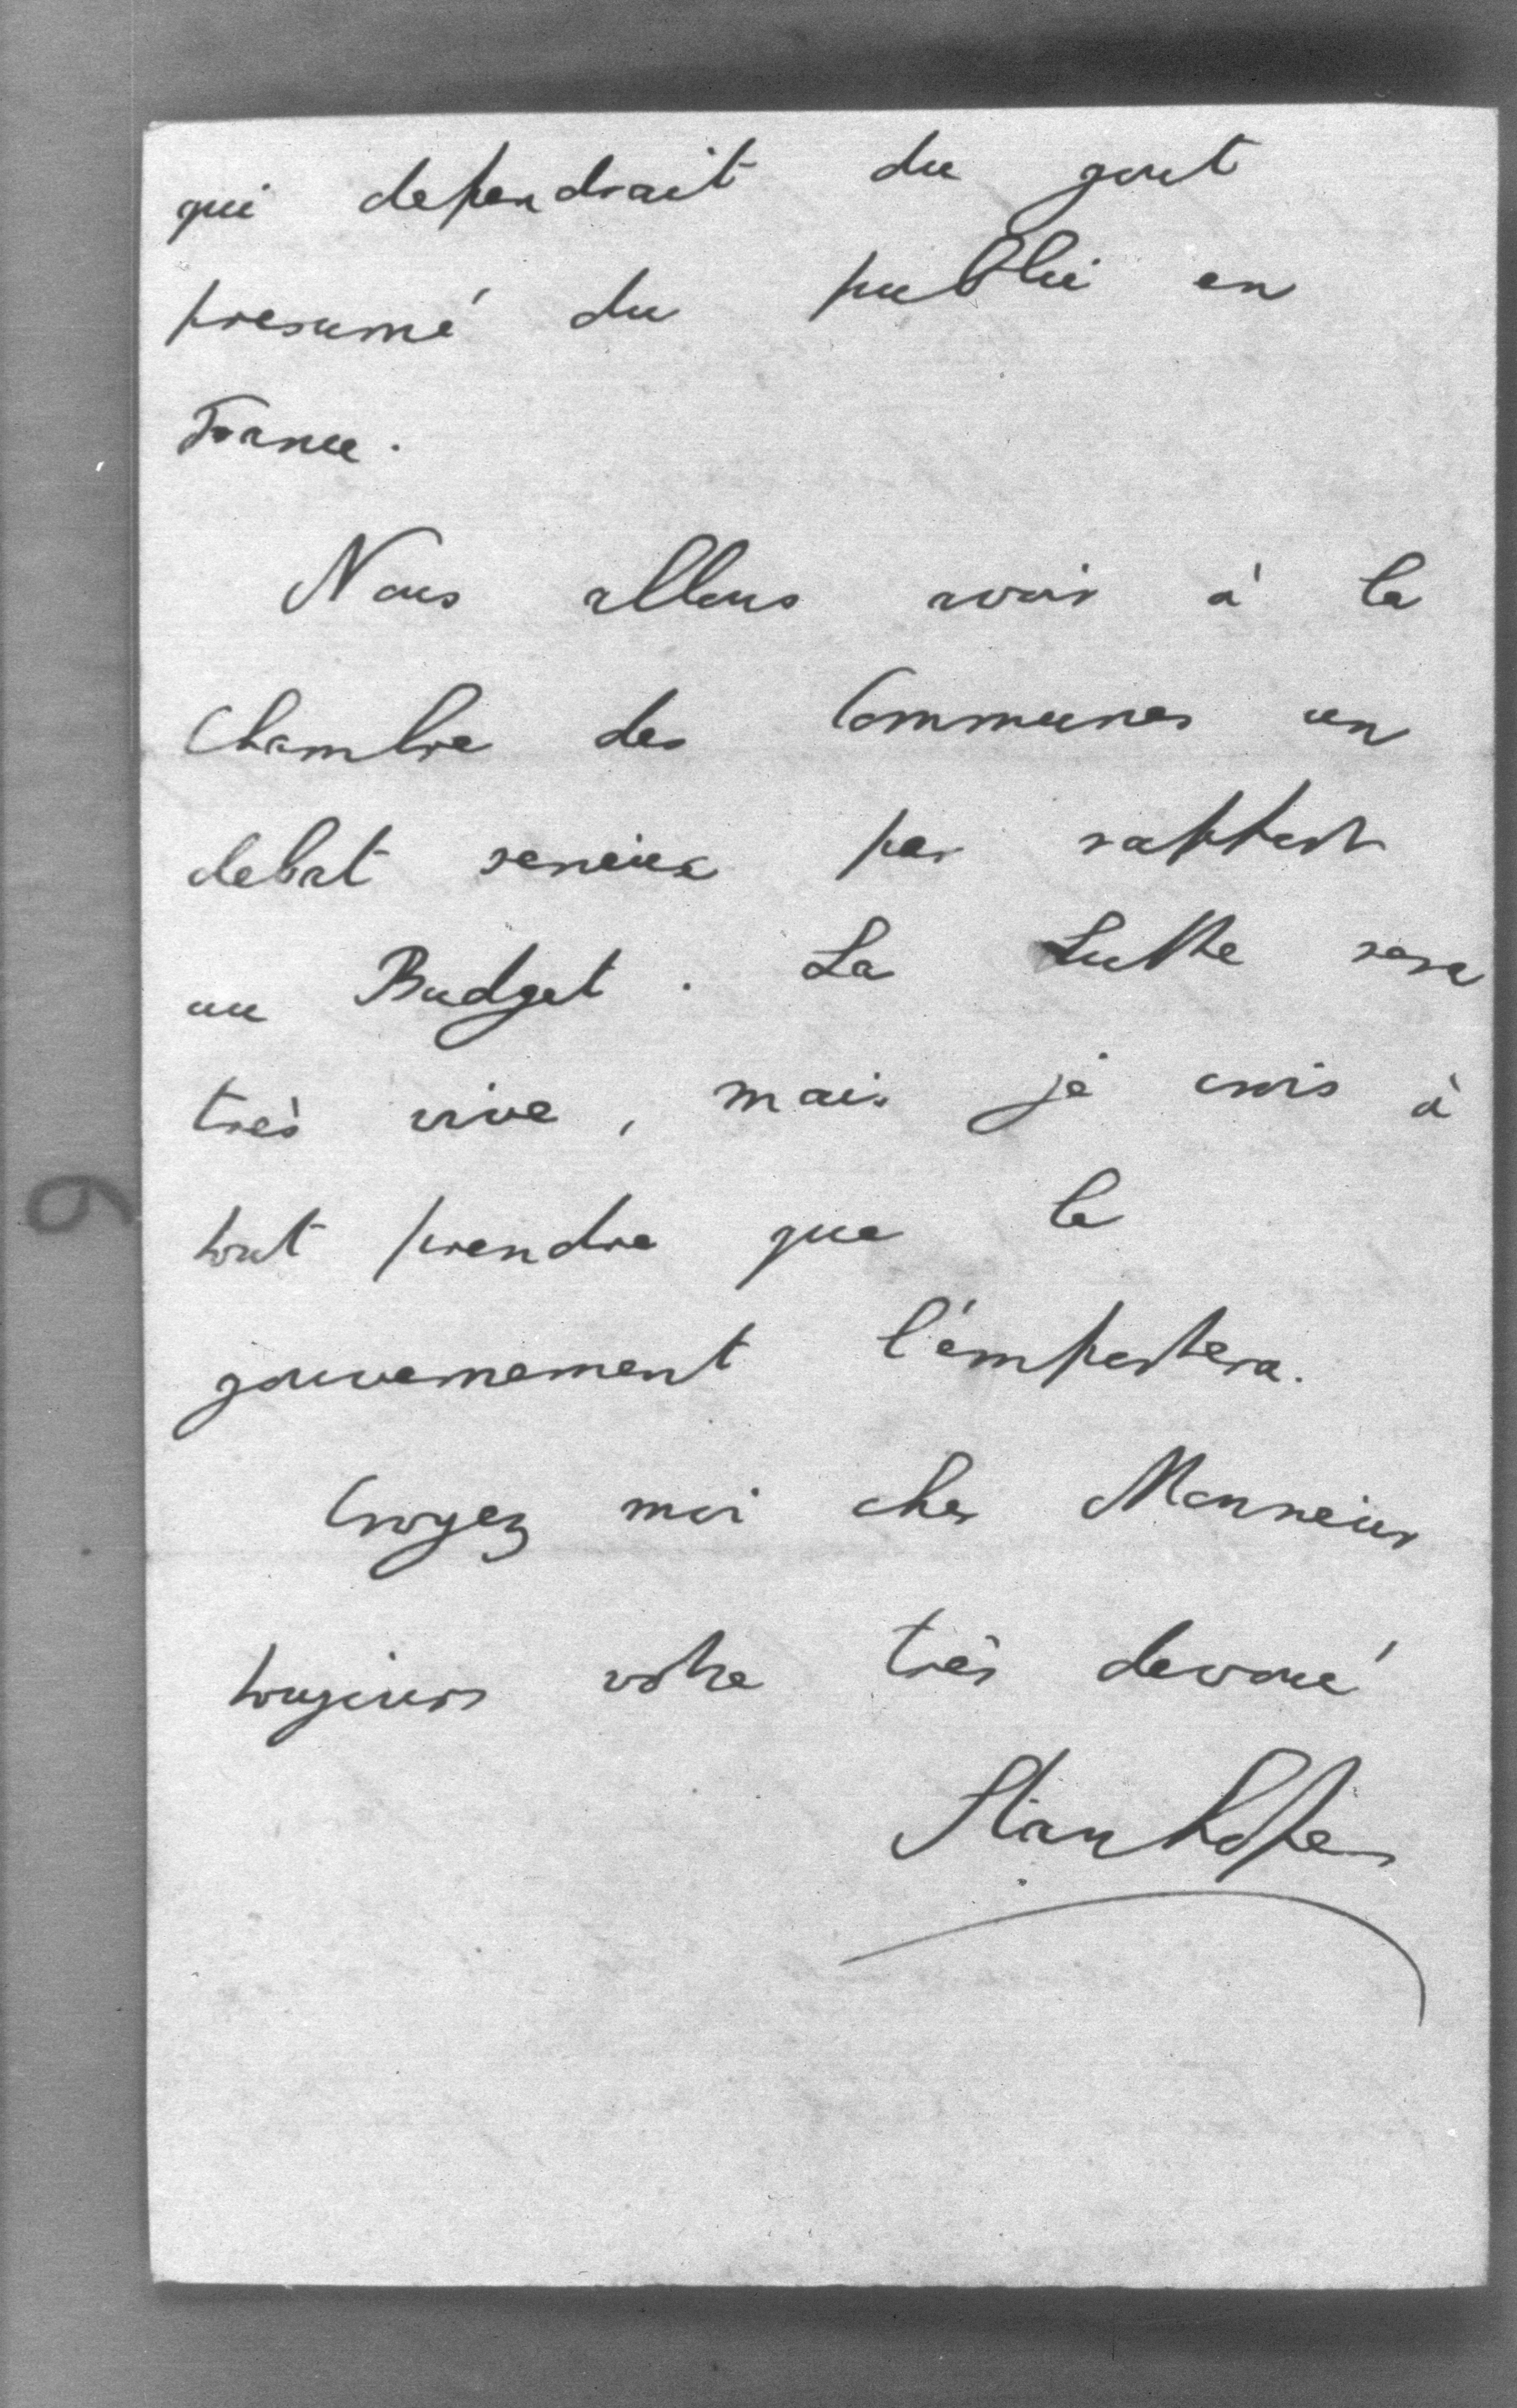 qui dependrait du gout
presumé du public en
France.
Nous allons avoir à la
Chambre des Communes un
debat serieux par rapport
au Budget. La Lutte sera
très vive, mais je crois à
tout prendre que le
gouvernement l'émportera.
Croyez moi cher Monsieur
toujours votre très devoué
Stanhope
9